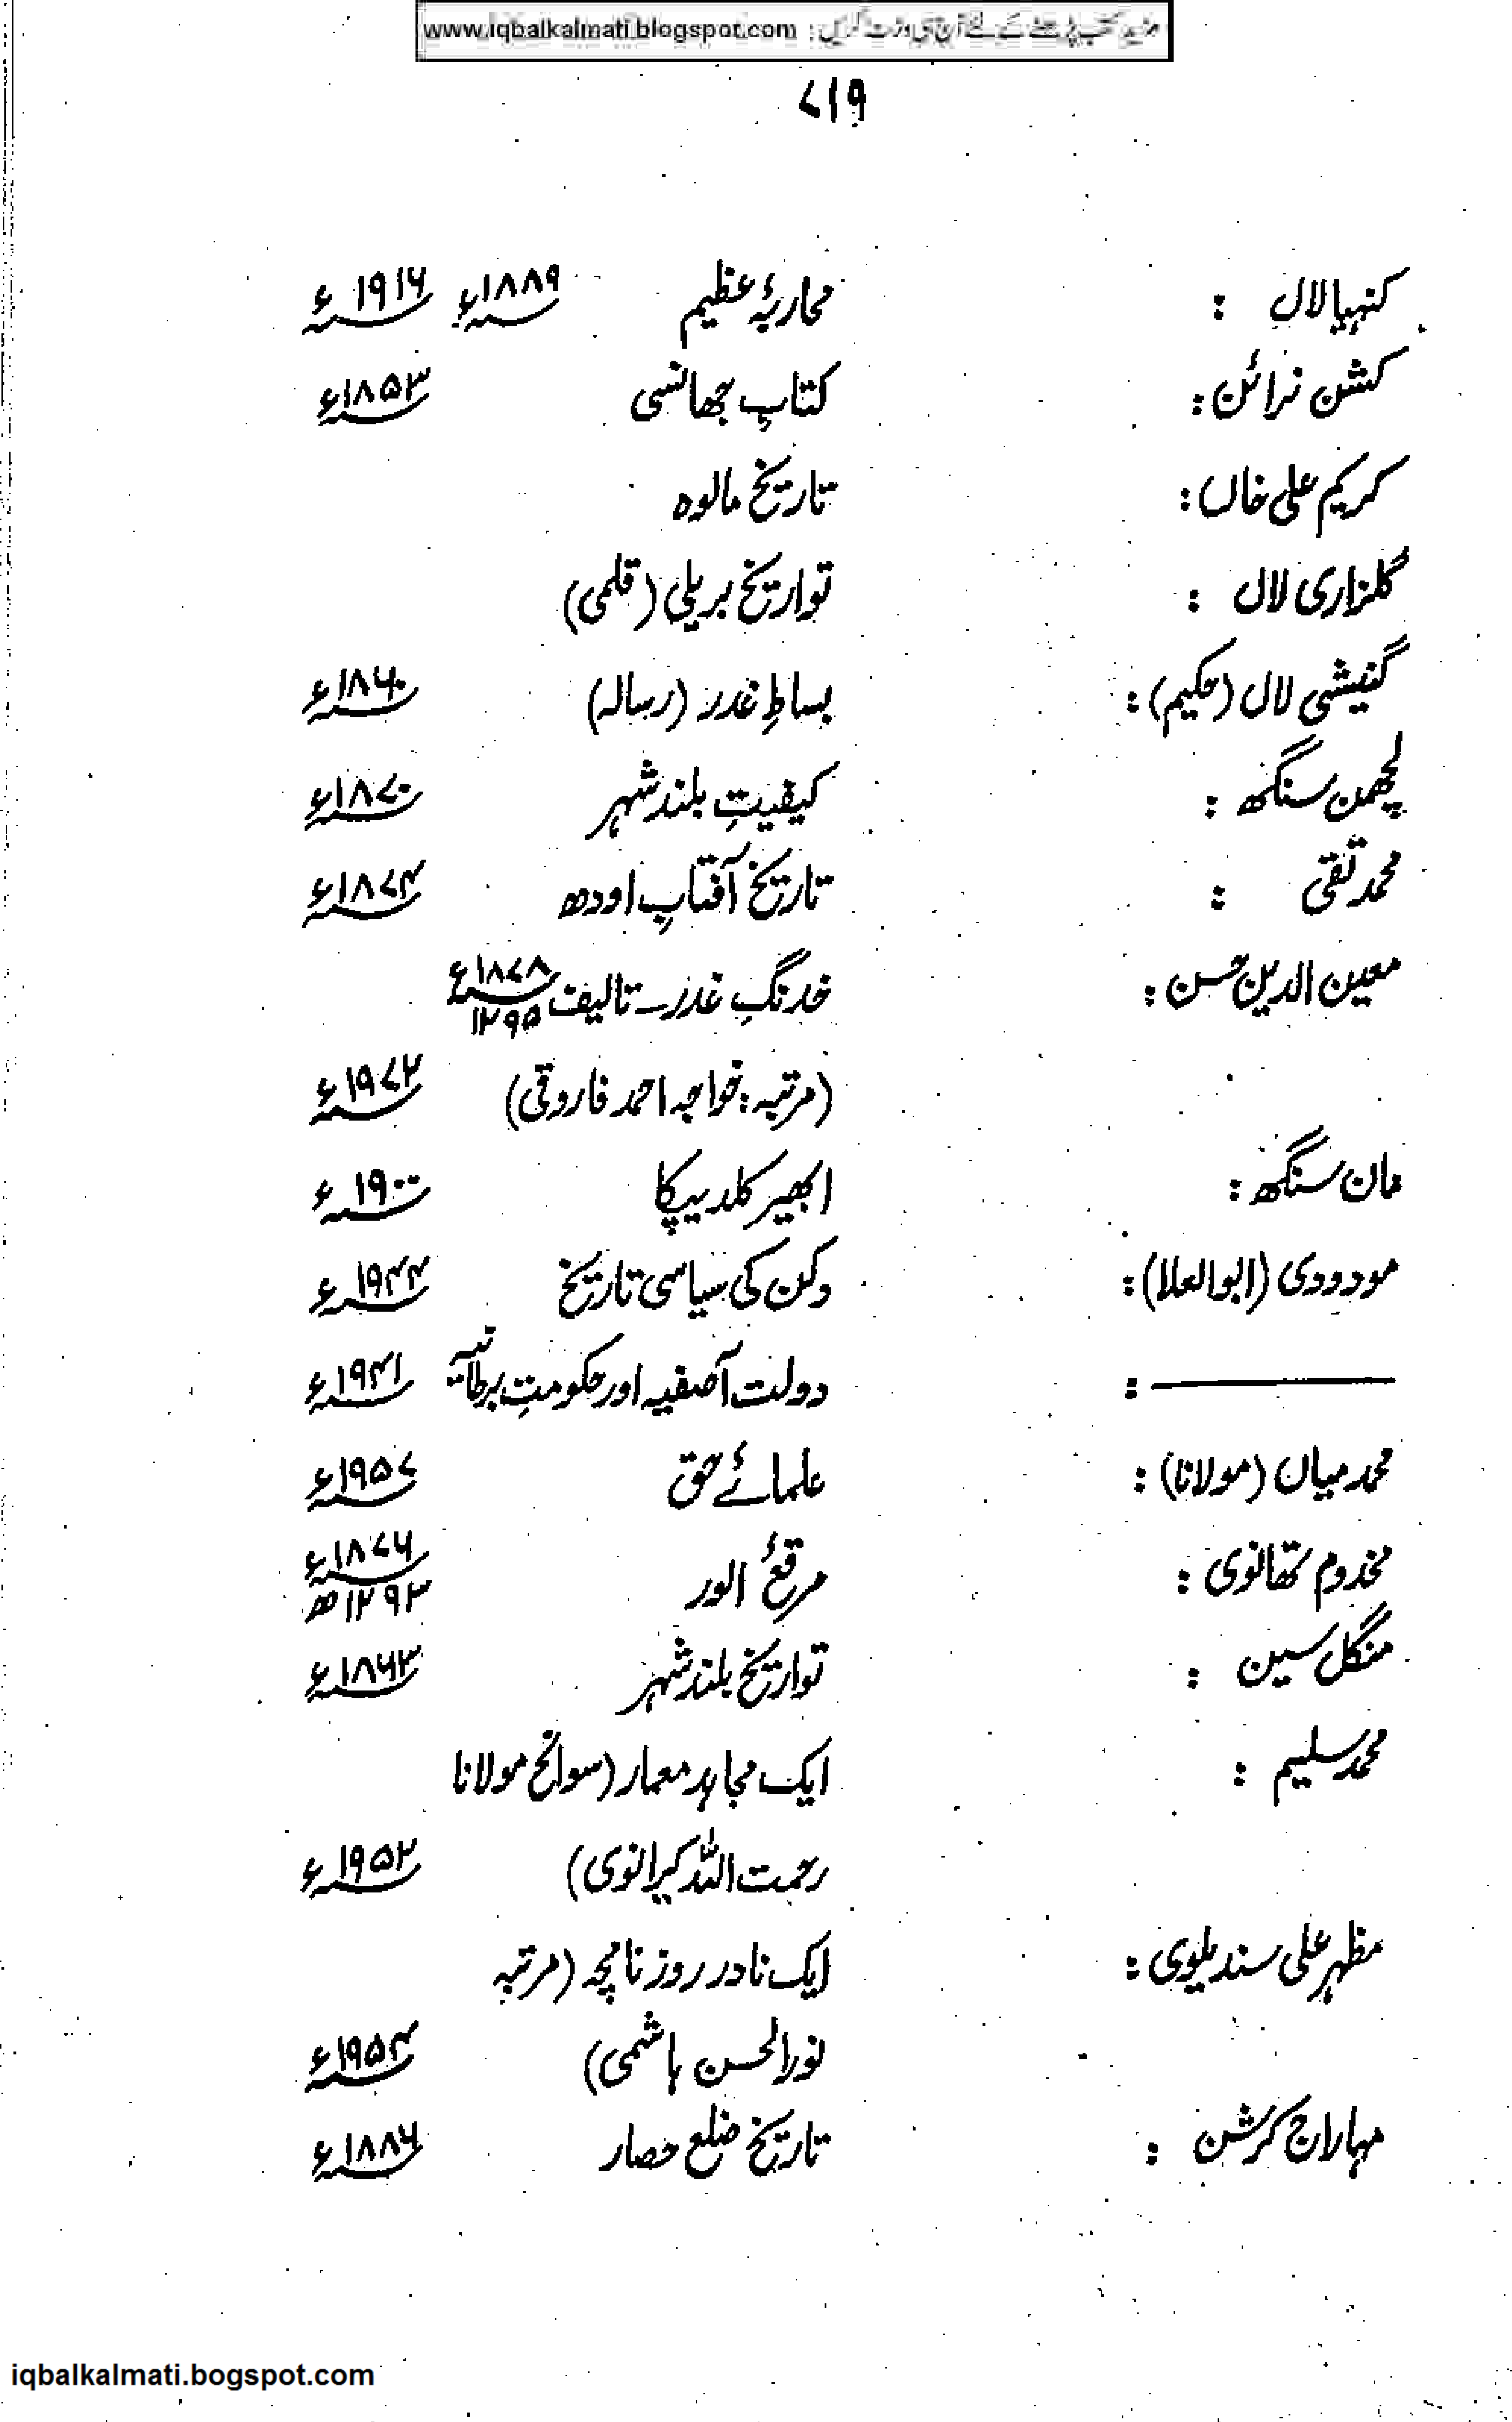 مزید کتب پڑھنے کے لئے آج ہی وزٹ کریں : www.iqbalkalmati.blogspot.com
۷۱۹
کنہیا لال : محاربۂ عظیم ۱۸۸۹ء ۱۹۱۶ء
کشن نرائن : کتابِ جھانسی ۱۸۵۳ء
کریم علی خاں : تاریخ مالوہ
گلزاری لال : تواریخ بریلی (قلمی)
گنیشی لال (حکیم) : بساطِ غدر (رسالہ) ۱۸۶۰ء
لچھمن سنگھ : کیفیتِ بلند شہر ۱۸۷۰ء
محمد تقی : تاریخ آفتابِ اودھ ۱۸۷۴ء
معین الدین حسن : خدنگِ غدر۔ تالیف ۱۸۷۸ء ۱۲۹۵
(مرتبہ: خواجہ احمد فاروقی) ۱۹۷۲ء
مان سنگھ : ابھیر کلدیپکا ۱۹۰۰ء
مودودی (ابوالعلا) : دکن کی سیاسی تاریخ ۱۹۴۴ء
——— : دولت آصفیہ اور حکومتِ برطانیہ ۱۹۴۱ء
محمد میاں (مولانا) : علمائے حق ۱۹۵۷ء
مخدوم تھانوی : مرقعٔ الور ۱۸۷۶ء ۱۲۹۳ھ
منگل سین : تواریخ بلند شہر ۱۸۶۳ء
محمد سلیم : ایک مجاہد معمار (سوانح مولانا
رحمت اللہ کیرانوی) ۱۹۵۲ء
مظہر علی سندیلوی : ایک نادر روزنامچہ (مرتبہ
نورالحسن ہاشمی) ۱۹۵۴ء
مہاراج کرشن : تاریخ ضلع حصار ۱۸۸۶ء
iqbalkalmati.bogspot.com